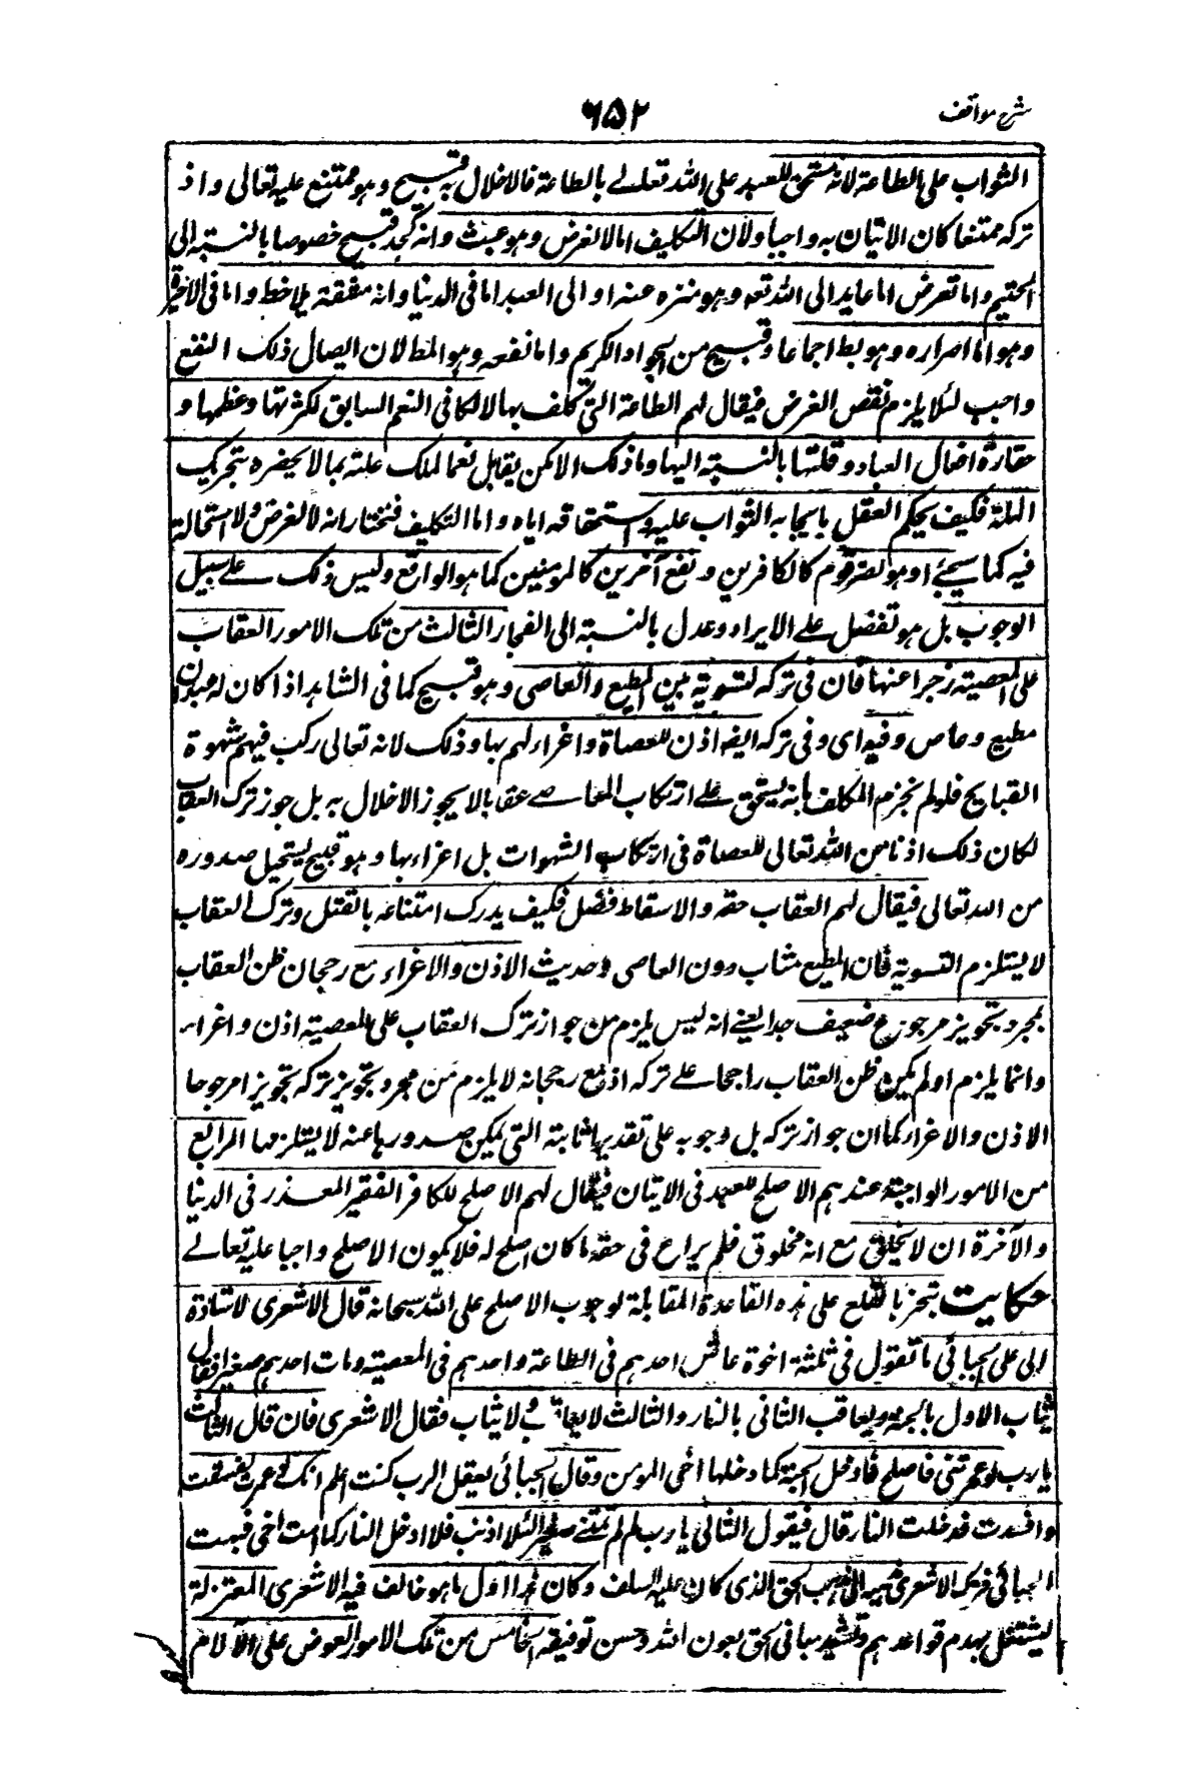 شرح مواقف
۶۵۲
الثواب على الطاعة لانه مستحق للعبد على الله تعالى بالطاعة فالاخلال به قبيح وهو ممتنع عليه تعالى واذ
تركه ممتنعا كان الاتيان به واجبا ولان التكليف اما لا لغرض وهو عبث وانه لجد قبيح خصوصا بالنسبة الى
الحكيم واما لغرض اما عايد الى الله تعه وهو منزه عنه او الى العبد اما فى الدنيا وانه مشقته بلا حظ واما فى الاخرة
وهو اما اضراره وهو بط اجماعا وقبيح من الجواد الكريم واما نفعه وهو المط لان ايصال ذلك النفع
واجب لئلا يلزم نقض الغرض فيقال لهم الطاعة التى كلف بها لا تكافى النعم السابق لكثرتها وعظمها و
حقارة افعال العباد وقلتها بالنسبة اليها وما ذلك الا كمن يقابل نعما لملك عليه بما لا يحضره بتحريك
انملة فكيف يحكم العقل بايجابه الثواب عليه واستحقاقه اياه واما التكليف فنختار انه لا لغرض ولا استحالة
فيه كما سيجئ او هو لضر قوم كالكافرين ونفع آخرين كالمومنين كما هو الواقع وليس ذلك على سبيل
الوجوب بل هو تفضل على الابرار وعدل بالنسبة الى الفجار الثالث من تلك الامور العقاب
على المعصية زجرا عنها فان فى تركه التسوية بين المطيع والعاصى وهو قبيح كما فى الشاهد اذا كان له عبدان
مطيع وعاص وفيه اى وفى تركه ايضا اذن للعصاة واغراء لهم بها وذلك لانه تعالى ركب فيهم شهوة
القبايح فلو لم يجزم المكلف بانه يستحق على ارتكاب المعاصى عقابا لا يجوز الاخلال به بل جوز ترك العقاب
لكان ذلك اذنا من الله تعالى للعصاة فى ارتكاب الشهوات بل اغراء بها وهو قبيح يستحيل صدوره
من الله تعالى فيقال لهم العقاب حقه والاسقاط فضل فكيف يدرك امتناعه بالعقل وترك العقاب
لا يستلزم التسوية فان المطيع مثاب دون العاصى وحديث الاذن والاغراء مع رجحان ظن العقاب
بمجرد تجويز مرجوح ضعيف جدا يعنى انه ليس يلزم من جواز ترك العقاب على المعصية اذن واغراء
وانما يلزم اولم يكن ظن العقاب راجحا على تركه اذ مع رجحانه لا يلزم من مجرد تجويز تركه تجويزا مرجوحا
الاذن والاغراء كما ان جواز تركه بل وجوبه على تقدير انابته التى يمكن صدورها عنه لا يستلزمها الرابع
من الامور الواجبة عندهم الاصلح للعبد فى الاتيان فيقال لهم الاصلح للكافر الفقير المعذر فى الدنيا
والآخرة ان لا يخلق مع انه مخلوق فلم يراع فى حقه ما كان اصلح له فلا يكون الاصلح واجبا عليه تعالى
حكايت تبجز بالقلع على هذه القاعدة القابلة لوجوب الاصلح على الله سبحانه قال الاشعرى لاستاذه
ابى على الجبائى ما تقول فى ثلثة اخوة عاش احدهم فى الطاعة واحدهم فى المعصية ومات احدهم صغيرا فقال
يثاب الاول بالجنة ويعاقب الثانى بالنار والثالث لا يعاقب ولا يثاب فقال الاشعرى فان قال الثالث
يا رب لو عمرتنى فاصلح فادخل الجنة كما دخلها اخى المومن وقال الجبائى يقول الرب كنت اعلم انك لو عمرت لفسقت
وافسدت فدخلت النار قال فيقول الثانى يا رب لم لم تمتنى صغيرا لئلا اذنب فلا ادخل النار كما امت اخى فبهت
الجبائى فترك الاشعرى مذهبه الى مذهب الحق الذى كان عليه السلف وكان هذا اول ما هو خالف فيه الاشعرى المعتزلة
ليشتغل بهدم قواعدهم وتشييد مبانى الحق بعون الله وحسن توفيقه الخامس من تلك الامور العوض على الآلام